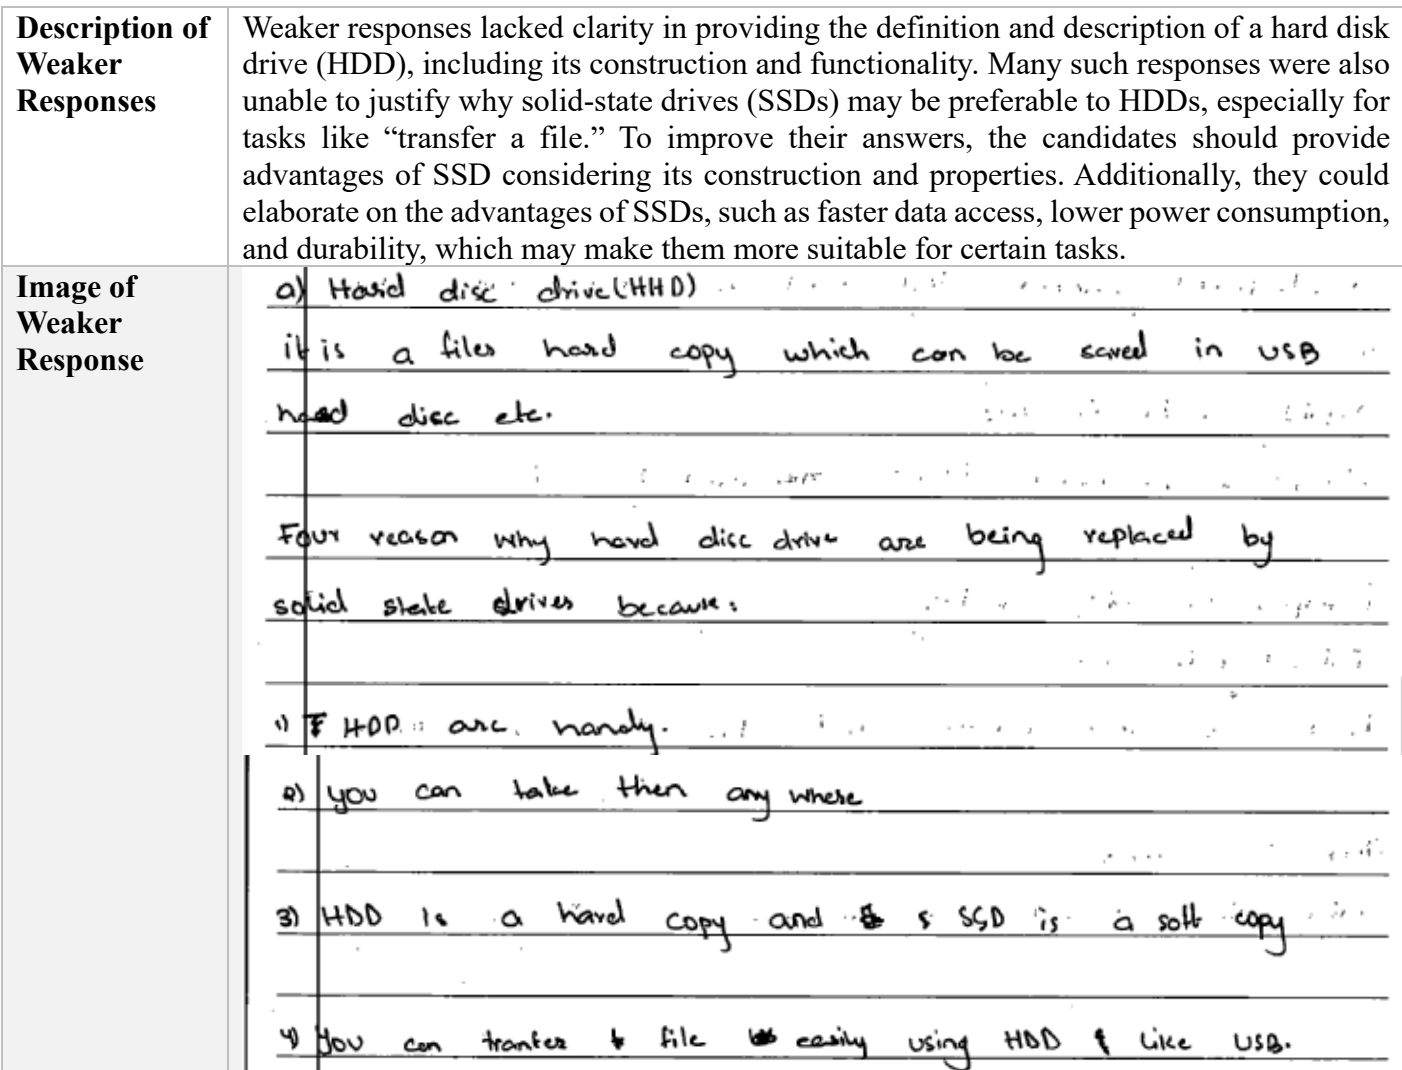 Description of
Weaker
Responses
Weaker responses lacked clarity in providing the definition and description of a hard disk
drive (HDD), including its construction and functionality. Many such responses were also
unable to justify why solid-state drives (SSDs) may be preferable to HDDs, especially for
tasks like “transfer a file.” To improve their answers, the candidates should provide
advantages of SSD considering its construction and properties. Additionally, they could
elaborate on the advantages of SSDs, such as faster data access, lower power consumption,
and durability, which may make them more suitable for certain tasks.
Image of
Weaker
Response
a) Hard disc drive (HHD)
it is a files hard copy which can be saved in USB
hard disc etc.
Four reason why hard disc drive are being replaced by
solid state drives because:
1) HDD are handy.
2) you can take then any where
3) HDD Is a hard copy and s SSD is a soft copy
4) You can tranfer file easily using HDD Like USB.